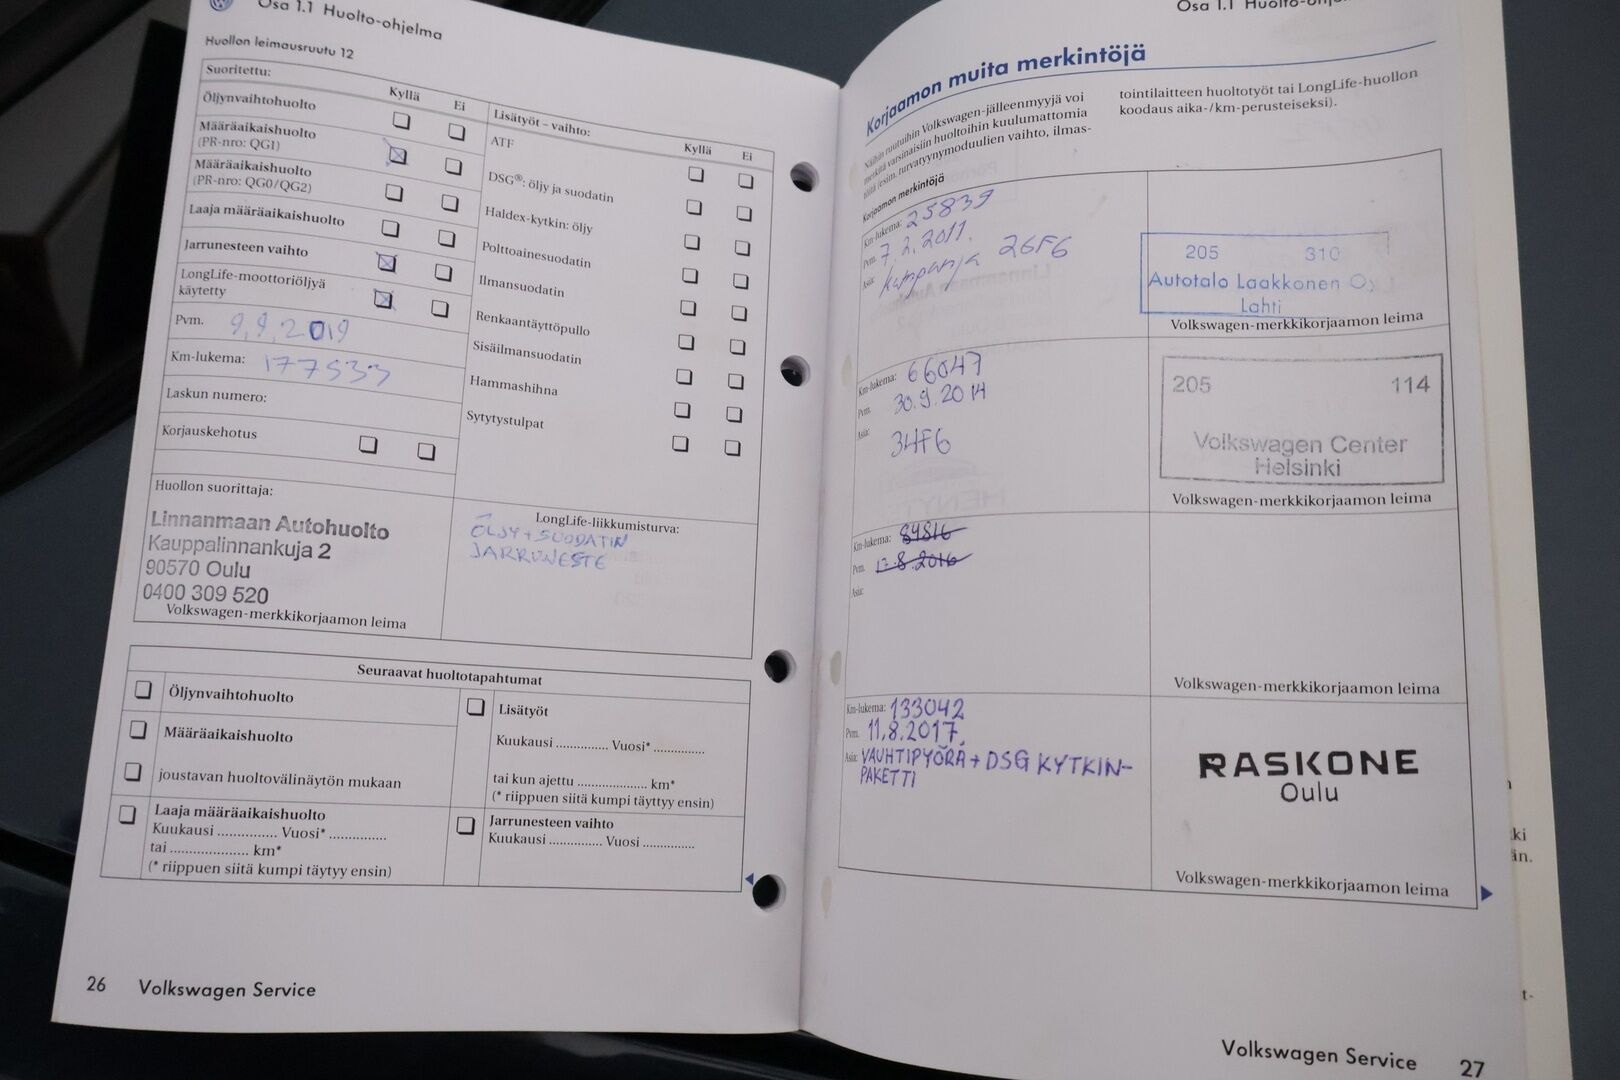 Osa 1.1 Huolto-ohjelma
Huollon leimausruutu 12
Suoritettu:
Kyllä Ei
Öljynvaihtohuolto
Määräaikaishuolto
(PR-nro: QG1)
Määräaikaishuolto
(PR-nro: QG0/QG2)
Laaja määräaikaishuolto
Jarrunesteen vaihto
LongLife-moottoriöljyä
käytetty
Pvm. 9.9.2019
Km-lukema: 177533
Laskun numero:
Korjauskehotus
Lisätyöt – vaihto:
Kyllä Ei
ATF
DSG®: öljy ja suodatin
Haldex-kytkin: öljy
Polttoainesuodatin
Ilmansuodatin
Renkaantäyttöpullo
Sisäilmansuodatin
Hammashihna
Sytytystulpat
Huollon suorittaja:
Linnanmaan Autohuolto
Kauppalinnankuja 2
90570 Oulu
0400 309 520
Volkswagen-merkkikorjaamon leima
LongLife-liikkumisturva:
ÖLJY + SUODATIN
JARRUNESTE
Seuraavat huoltotapahtumat
Öljynvaihtohuolto
Määräaikaishuolto
joustavan huoltovälinäytön mukaan
Laaja määräaikaishuolto
Kuukausi ............... Vuosi* ...............
tai .................... km*
(* riippuen siitä kumpi täytyy ensin)
Lisätyöt
Kuukausi .............. Vuosi* ..............
tai kun ajettu .................... km*
(* riippuen siitä kumpi täyttyy ensin)
Jarrunesteen vaihto
Kuukausi .............. Vuosi ..............
26 Volkswagen Service
Osa 1.1
Korjaamon muita merkintöjä
Näihin ruutuihin Volkswagen-jälleenmyyjä voi
merkitä varsinaisiin huoltoihin kuulumattomia
töitä (esim. turvatyynymoduulien vaihto, ilmas-
tointilaitteen huoltotyöt tai LongLife-huollon
koodaus aika-/km-perusteiseksi).
Korjaamon merkintöjä
Km-lukema: 25839
Pvm. 7.2.2011.
Asia: kampanja 26F6
205 310
Autotalo Laakkonen Oy
Lahti
Volkswagen-merkkikorjaamon leima
Km-lukema: 66047
Pvm. 30.9.2014
Asia: 34F6
205 114
Volkswagen Center
Helsinki
Volkswagen-merkkikorjaamon leima
Km-lukema: 84816
Pvm. .8.2016
Asia:
Volkswagen-merkkikorjaamon leima
Km-lukema: 133042
Pvm. 11.8.2017
Asia: VAUHTIPYÖRÄ + DSG KYTKIN-
PAKETTI
RASKONE
Oulu
Volkswagen-merkkikorjaamon leima
Volkswagen Service 27